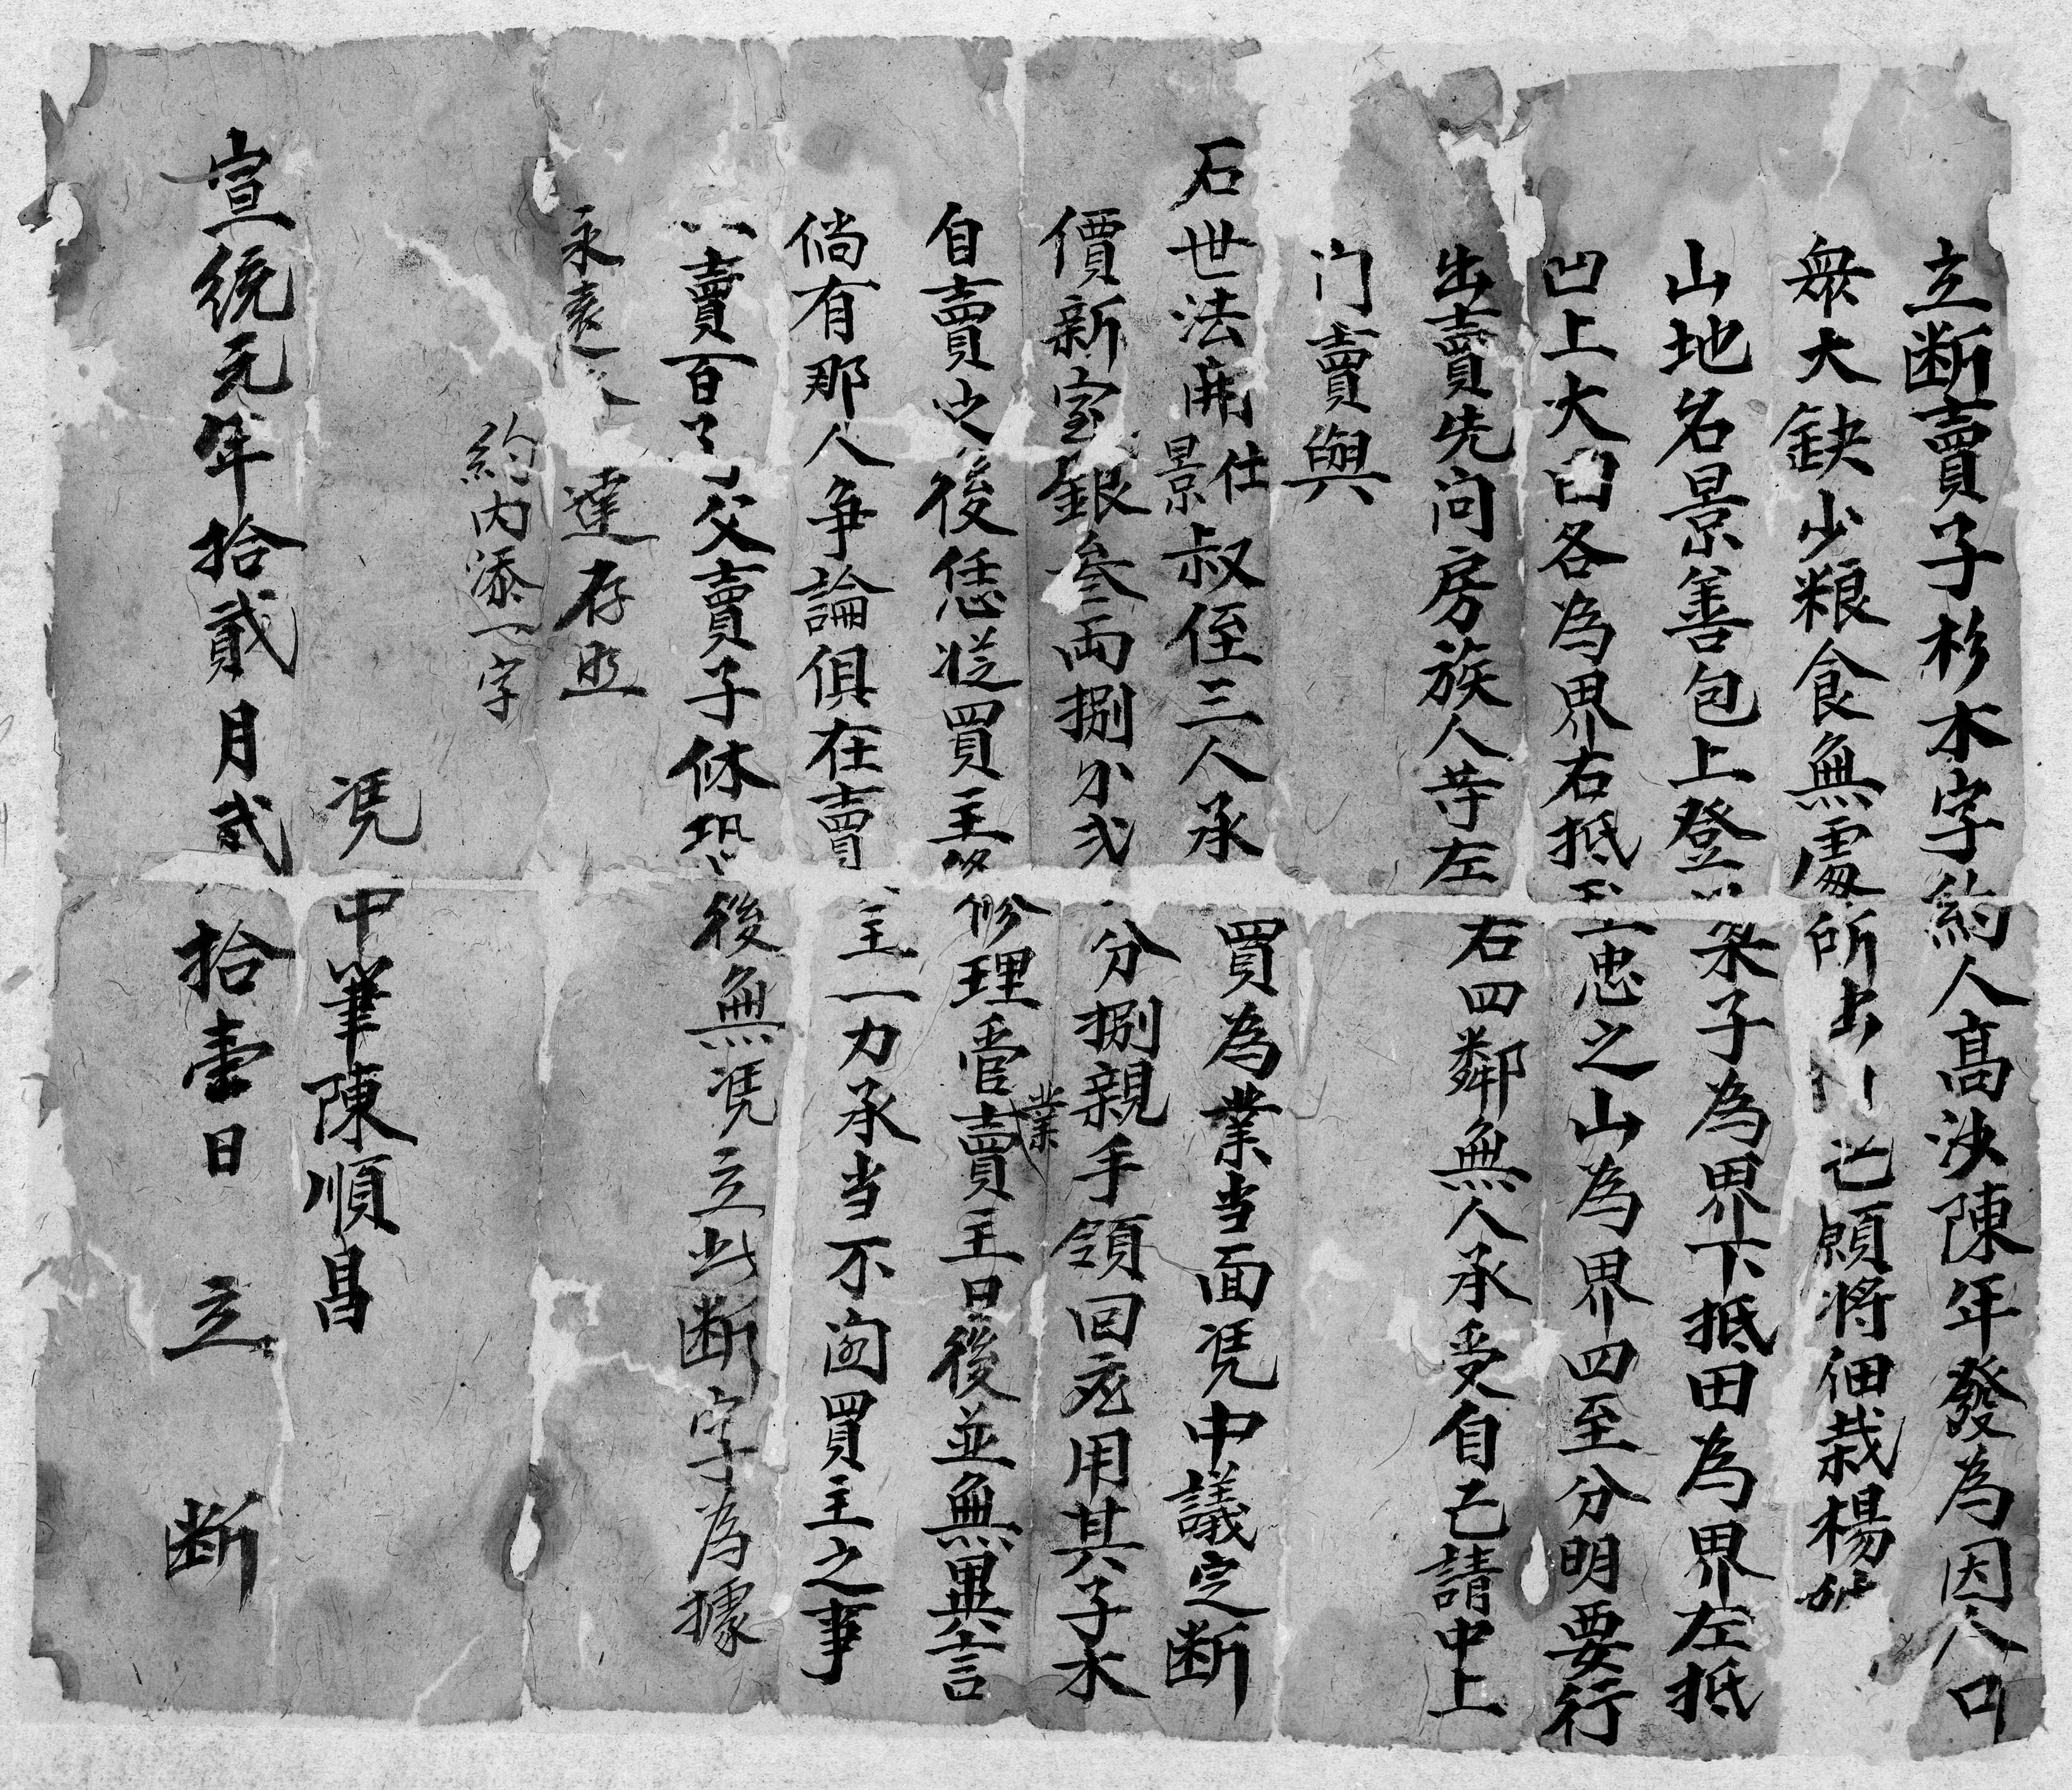 立断賣子杉木字約人高沙陳年發為因人口
眾大缺少粮食無處所出 已願将佃栽楊
山地名景善包上登 朵子為界下抵田為界左抵
凹上大凹各為界右抵 忠之山為界四至分明要行
出賣先问房族人等左右四鄰無人承受自己請中上
门賣與
石世法 仕景叔侄三人承買為業当面凭中議定断
價新宝銀叁両捌分弍分捌親手領回应用其子木
自賣之後恁從買主修理管業賣主日後並無異言
倘有那人争論俱在賣主一力承当不関買主之事
賣百 父賣子休恐後無凭立此断字為據
永遠 達存照
約内添一字
凭中筆陳順昌
宣統元年拾貳月弍拾壹日立断